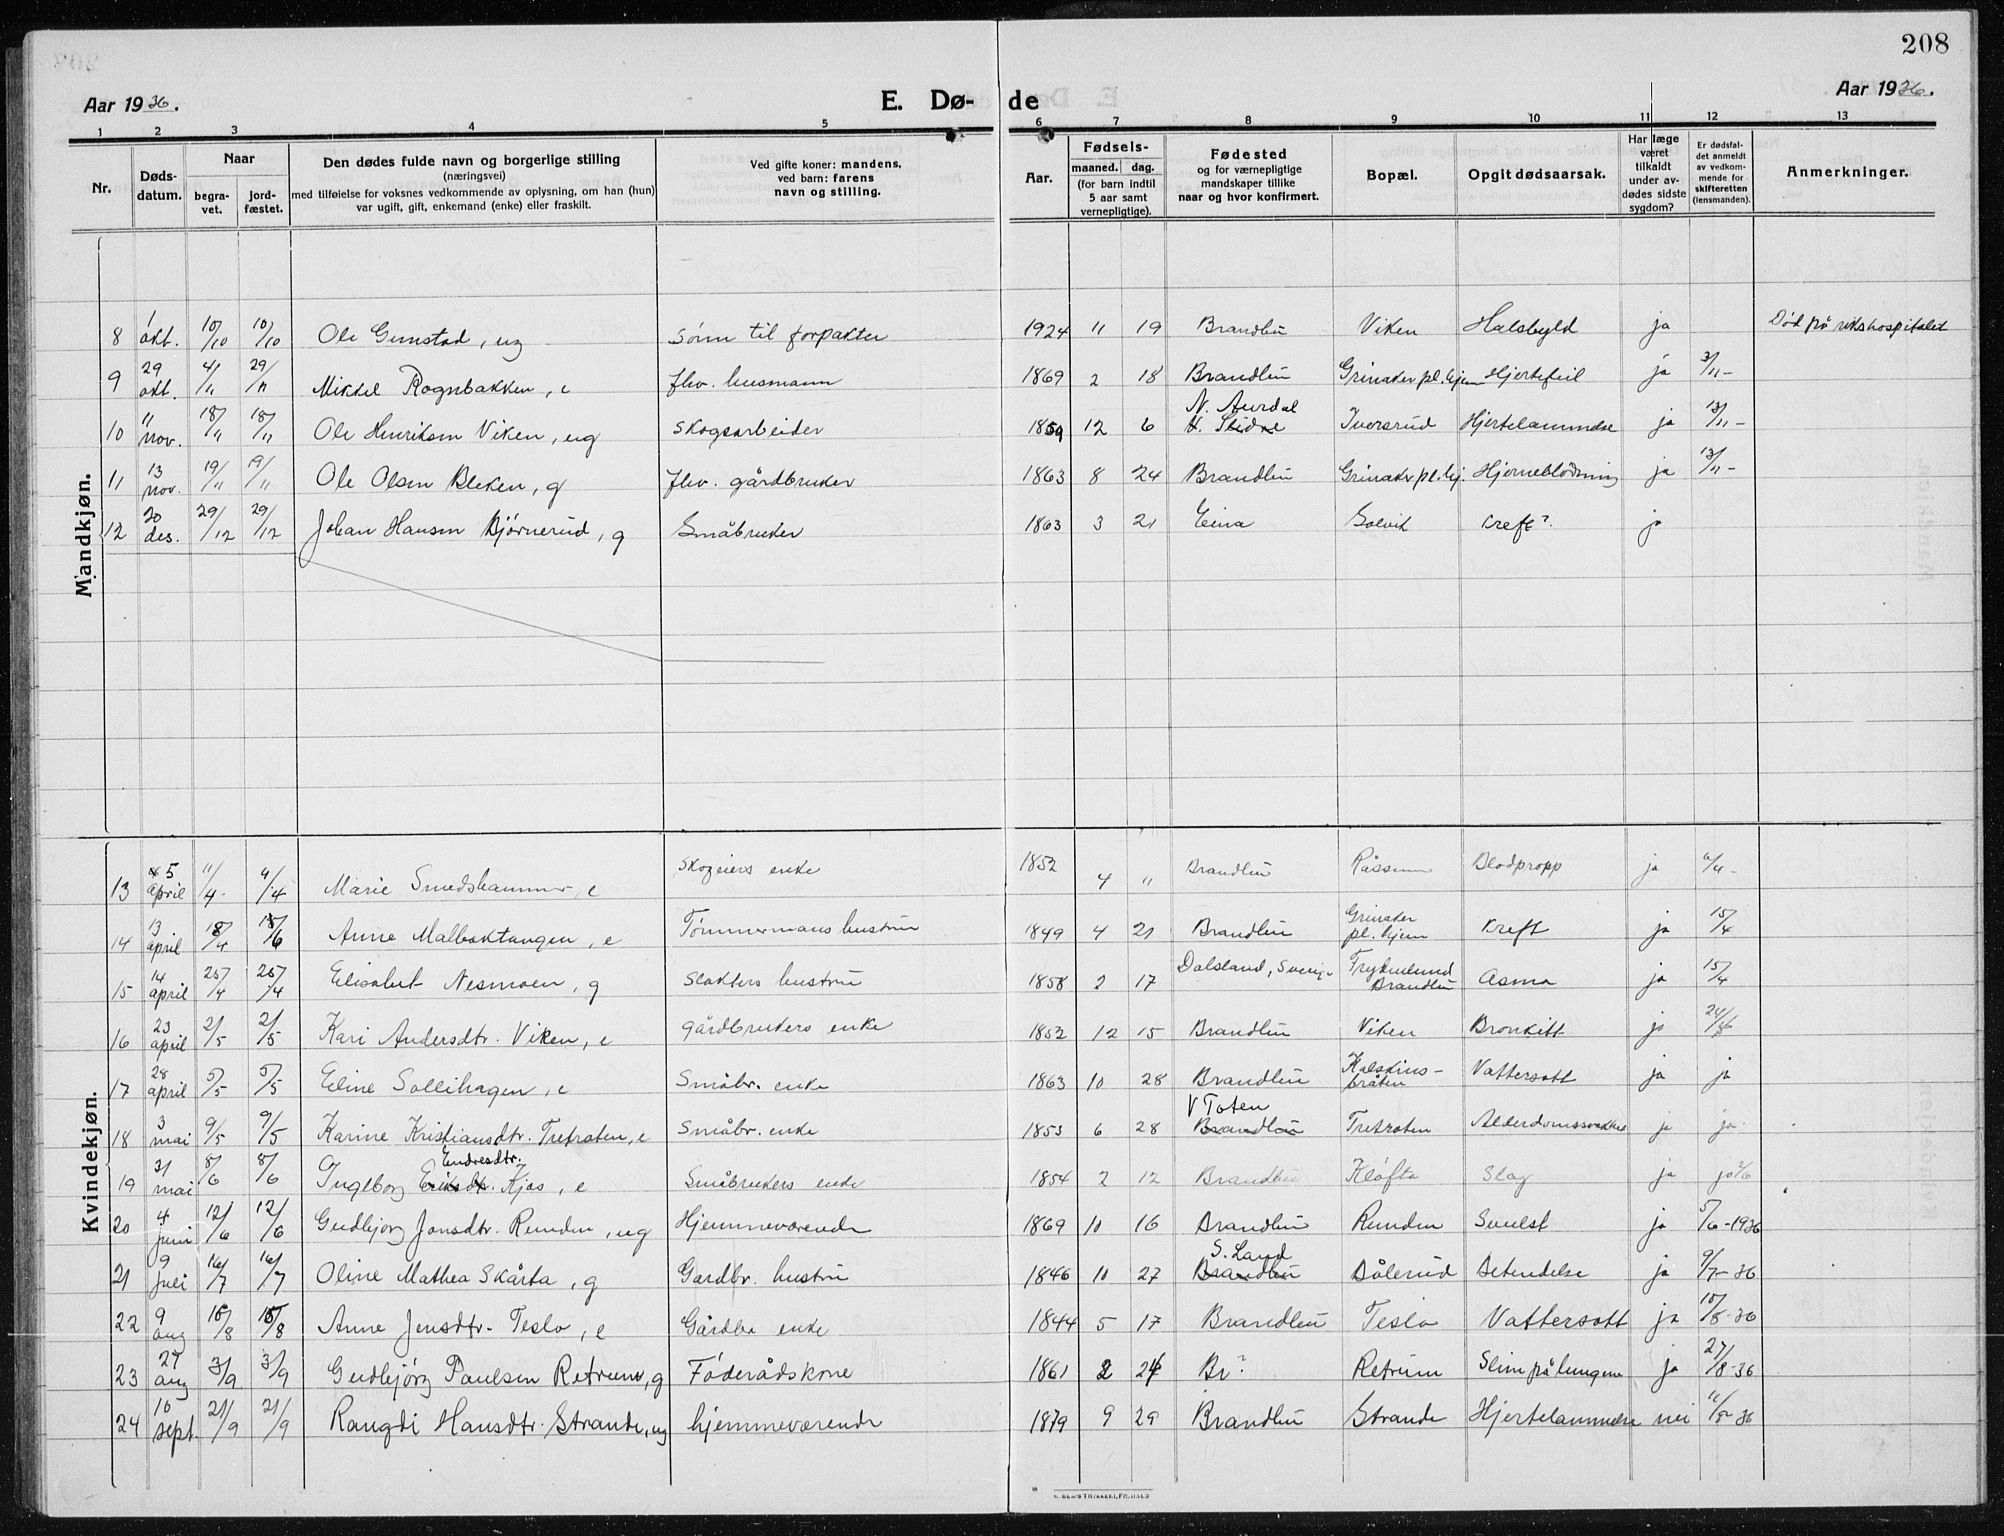 208
Aar 1936.
E. Dø-
de
Aar 1936.
1 2 3 4 5 6 7 8 9 10 11 12 13
Nr.
Døds-
datum.
Naar
begra-
vet.
jord-
fæstet.
Den dødes fulde navn og borgerlige stilling
(næringsvei)
med tilføielse for voksnes vedkommende av oplysning, om han (hun)
var ugift, gift, enkemand (enke) eller fraskilt.
Ved gifte koner: mandens,
ved barn: farens
navn og stilling.
Aar.
Fødsels-
maaned. dag.
(for barn indtil
5 aar samt
vernepligtige).
Fødested
og for værnepligtige
mandskaper tillike
naar og hvor konfirmert.
Bopæl.
Opgit dødsaarsak.
Har læge
været
tilkaldt
under av-
dødes sidste
sygdom?
Er dødsfal-
det anmeldt
av vedkom-
mende for
skifteretten
(lensmanden).
Anmerkninger.
Mandkjøn.
8 1 okt. 10/10 10/10 Ole Grinstad, ug sønn til forpakter 1924 11 19 Brandbu Viken Halsbyld ja Død på rikshospitalet
9 29 okt. 4/11 29/11 Mikkel Rognbakken, e fhv. husmann 1869 2 18 Brandbu Grinaker pl.hjem Hjertefeil ja 3/11-
N. Aurdal
10 11 nov. 18/11 18/11 Ole Henriksen Viken, ug Skogsarbeider 1859 12 6 V. Slidre Iversrud Hjertelammelse ja 13/11-
11 13 nov. 19/11 19/11 Ole Olsen Bleken, g fhv. gårdbruker 1863 8 24 Brandbu Grinaker pl.hj. Hjerneblødning ja 13/11-
12 20 des. 29/12 29/12 Johan Hansen Bjørnerud, g Småbruker 1863 3 21 Eina Solvik Kreft? ja
Kvindekjøn.
13 5 april 11/4 4/4 Marie Smedshammer, e Skogeiers enke 1852 4 " Brandbu Råssum Blodpropp ja 6/4-
14 13 april 18/4 18/6 Anne Malbaktangen, e Tømmermans hustru 1849 4 21 Brandbu Grinaker pl. hjem Kreft ja 15/4
15 14 april 25/4 25/4 Elisabet Nesmoen, g Slakters hustru 1858 2 17 Dalsland, Sverige Fryknlund Brandbu Asma ja 15/4
16 23 april 2/5 2/5 Kari Andersdtr. Viken, e gårdbrukers enke 1852 12 15 Brandbu Viken Bronkitt ja 24/4
17 28 april 5/5 5/5 Eline Sollihagen, e Småbr. enke 1863 10 28 Brandbu Halskins-bråten Vattersott ja ja
V Toten
18 3 mai 9/5 9/5 Karine Kristiansdtr. Tretroten, e Småbr. enke 1853 6 28 Brandbu Tretroten Alderdomssvakhet ja ja
Endresdtr.
19 31 mai 8/6 8/6 Ingeborg Eriksdtr. Kjos, e Småbrukers enke 1854 2 12 Brandbu Kløfta Slag ja ja 2/6
20 4 juni 12/6 12/6 Gudbjørg Jonsdtr. Runden, ug Hjemmeværende 1869 10 16 Brandbu Runden Svulst ja 5/6-1936
S. Land
21 9 juli 16/7 16/7 Oline Mathea Skårta, g Gardbr. hustru 1846 10 27 Brandbu Dålerud Betendelse ja 9/7-36
22 9 aug 15/8 15/8 Anne Jensdtr. Teslo, e Gårdbr enke 1844 5 17 Brandbu Teslo Vattersott ja 10/8-36
23 27 aug 3/9 3/9 Gudbjørg Paulsen Retrum, g Føderådskone 1861 2 24 Br? Retrum Slim på lungene ja 27/8-36
24 10 sept. 21/9 21/9 Rangdi Hansdtr. Strande, ug hjemmeværende 1879 9 29 Brandbu Strande Hjertelammelse nei 11/9-36